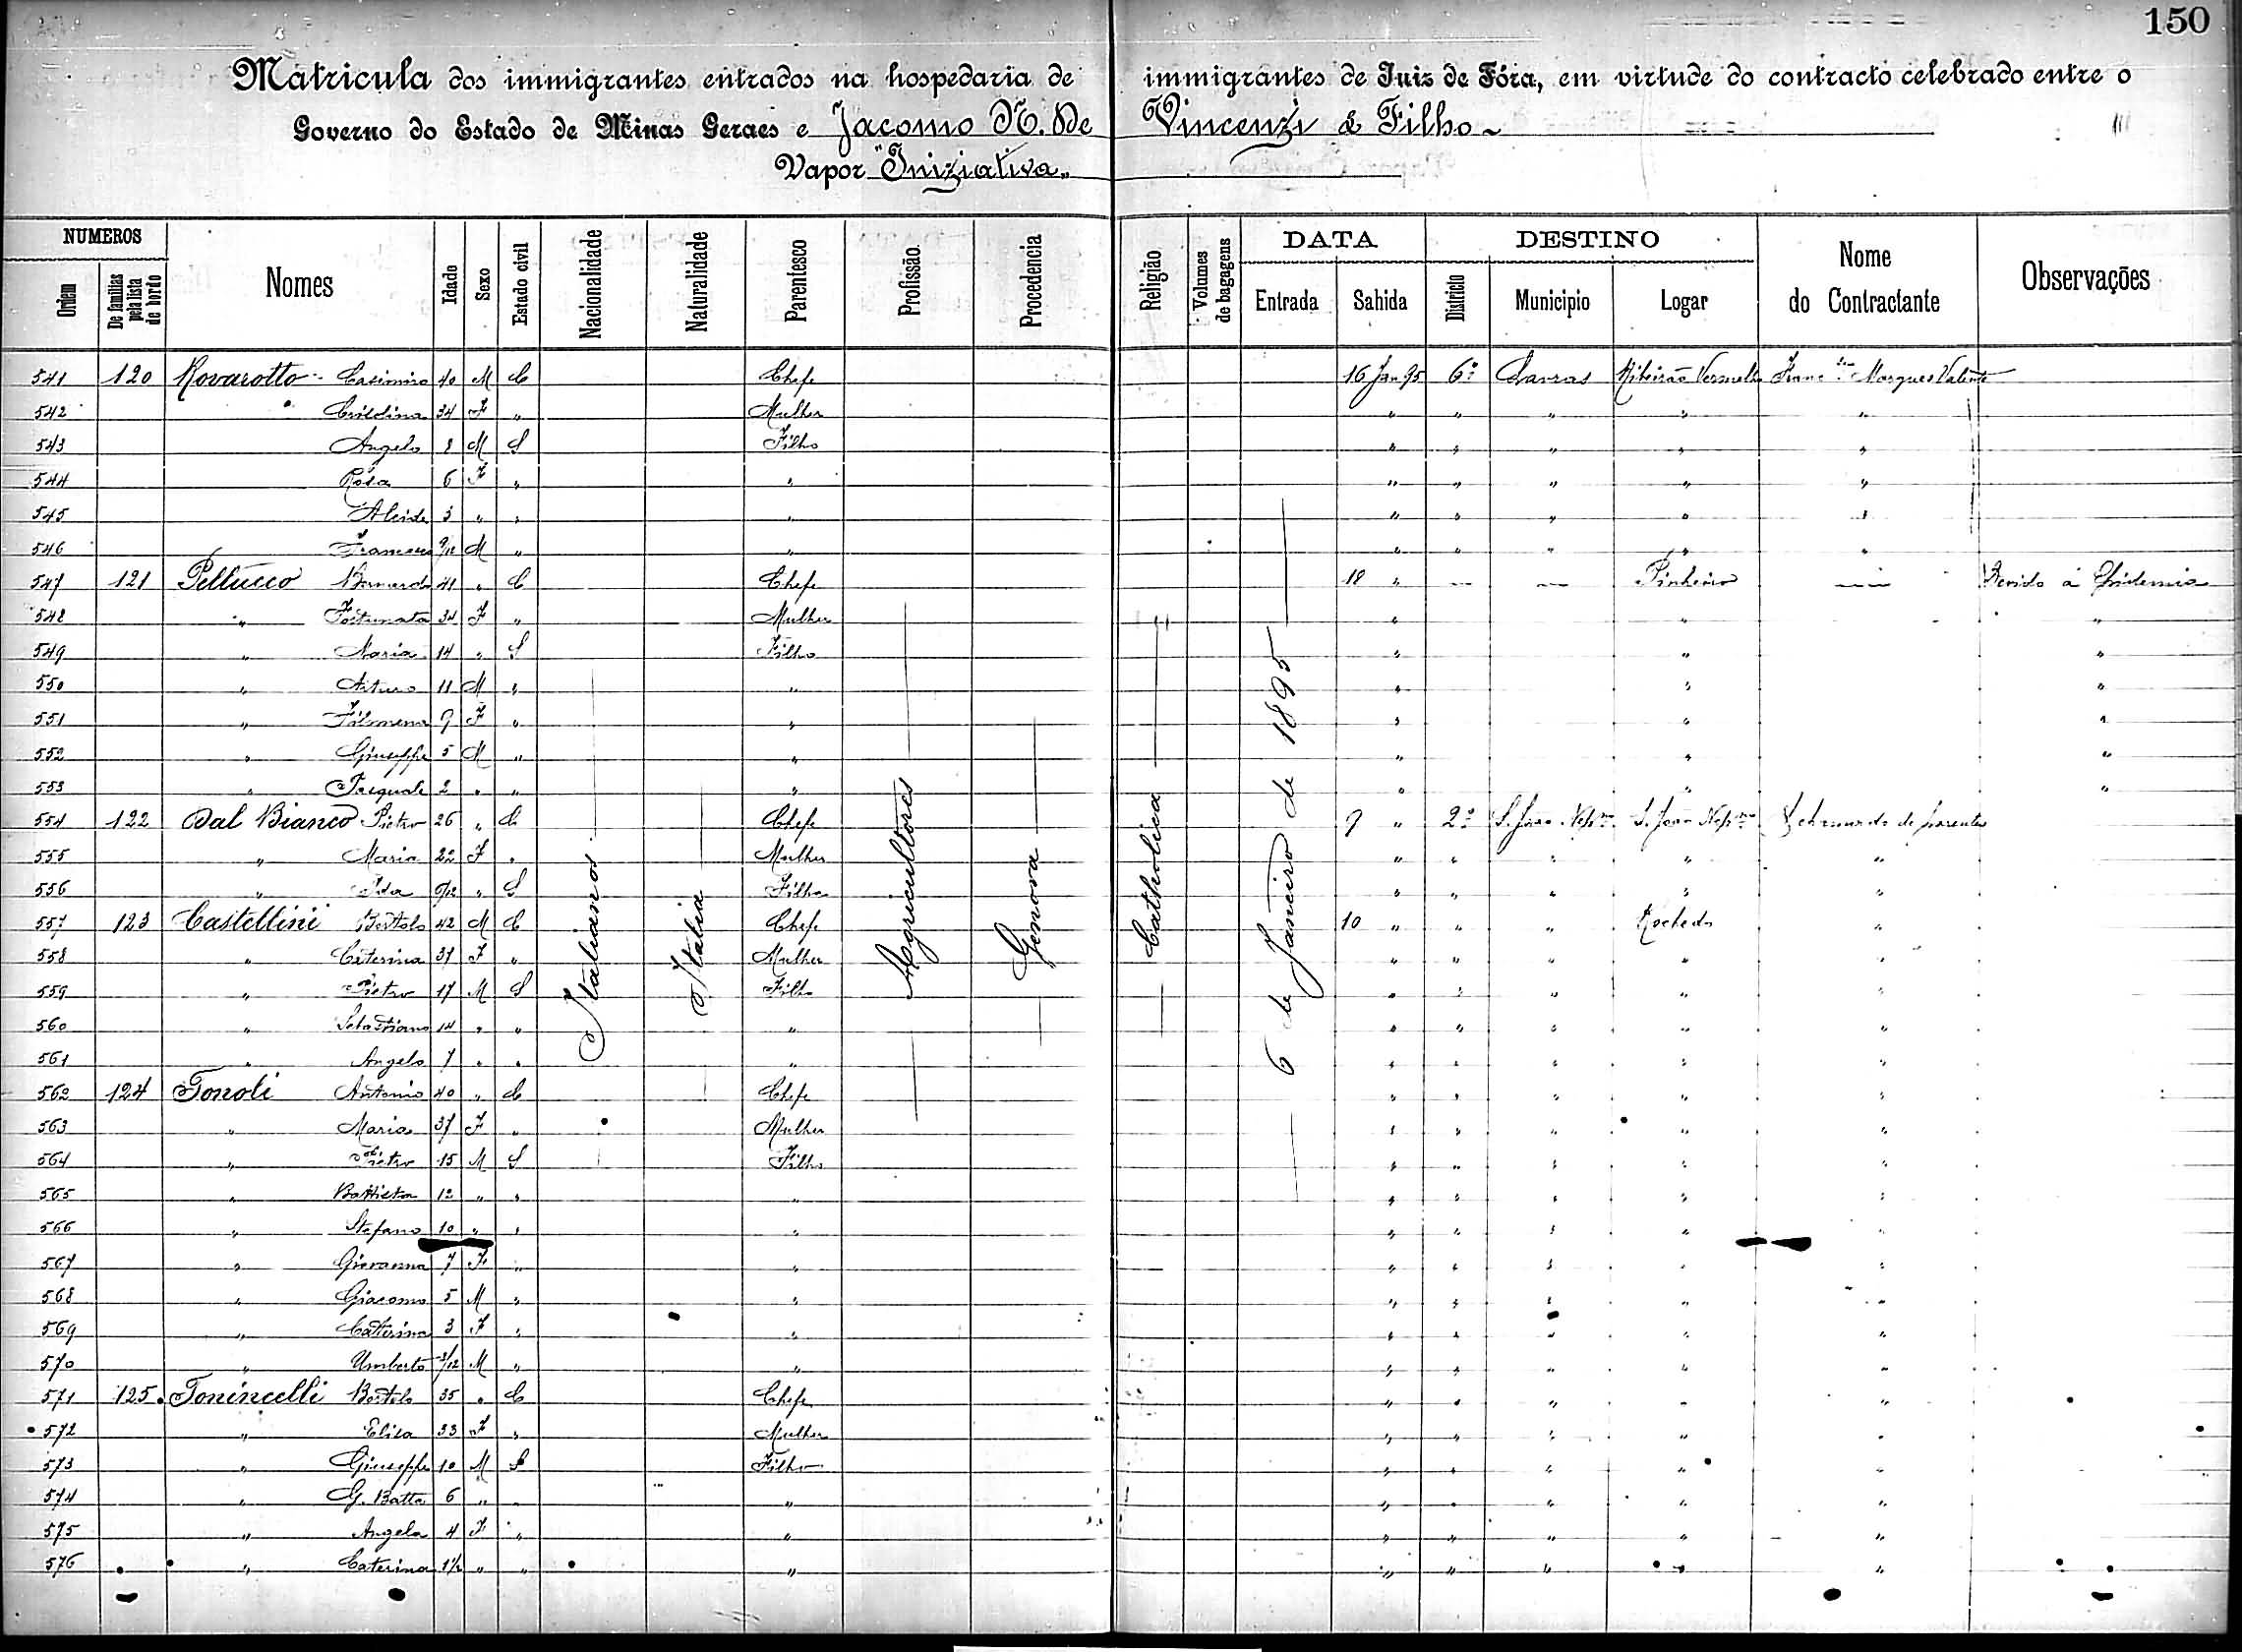 150
Matricula dos immigrantes entrados na hospedaria de immigrantes de Juiz de Fóra, em virtude do contracto celebrado entre o
Governo do Estado de Minas Geraes e Jacomo N. De Vincenzi & Filho
Vapor "Iniziativa"
NUMEROS Nomes Idade Sexo Estado civil Nacionalidade Naturalidade Parentesco Profissão. Procedencia Religião Volumes de bagagens DATA DESTINO Nome do Contractante Observações
Ordem De familias pela lista de bordo Entrada Sahida Districto Municipio Logar
541 120 Rovarotto Casimiro 40 M C Chefe 16 Jan 95 6º Lavras Ribeirão Vermelho Marques Valente
542 " 34 F " Mulher " " " " "
543 Angelo 8 M S Filho " " " " "
544 Rosa 6 F " " " " " " "
545 Alcide 3 " " " " " " " "
546 Francesco 9/12 M " " " " " " "
547 121 Pellucco Bernardo 41 " C Chefe 18 " — — Pinheiro — Devido á Epidemia
548 " Fortunata 34 F " Mulher " " "
549 " Maria 14 " S Filho " " "
550 " Arturo 11 M " " " " "
551 " Filomena 9 F " " " " "
552 " Giuseppe 5 M " " " " "
553 " Pasquale 2 " " " " " "
554 122 Dal Bianco Pietro 26 " C Chefe 9 " 2º S. João Nepno S. João Nepno Chamado de parentes
555 " Maria 22 F " Mulher " " " " "
556 " Ida 9/12 " S Filha " " " " "
557 123 Castellini Bortolo 42 M C Chefe 10 " " " Rochedo "
558 " Caterina 37 F " Mulher " " " " "
559 " Pietro 17 M S Filho " " " " "
560 " Sebastiano 14 " " " " " " " "
561 " Angelo 7 " " " " " " " "
562 124 Tonoli Antonio 40 " C Chefe " " " " "
563 " Maria 37 F " Mulher " " " " "
564 " Pietro 15 M S Filho " " " " "
565 " Battista 12 " " " " " " " "
566 " Stefano 10 " " " " " " " "
567 " Giovanna 7 F " " " " " " "
568 " Giacomo 5 M " " " " " " "
569 " Catterina 3 F " " " " " " "
570 " Umberto M " " " " " " "
571 125. Tonincelli Bortolo 35 " C Chefe " " " " "
572 " Elisa 33 F " Mulher " " " " "
573 " Giuseppe 10 M S Filho " " " " "
574 " G. Batta 6 " " " " " " " "
575 " Angela 4 F " " " " " " "
576 " Caterina 1½ " " " " " " " "
Italianos
Italia
Agricultores
Genova
Catholica
6 de Janeiro de 1895